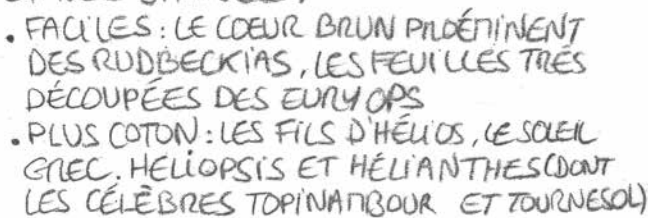 • FACILES : LE COEUR BRUN PROÉMINENT
DES RUDBECKIAS, LES FEUILLES TRÈS
DÉCOUPÉES DES EURYOPS
• PLUS COTON : LES FILS D'HÉLIOS, LE SOLEIL
GREC. HELIOPSIS ET HÉLIANTHES (DONT
LES CÉLÈBRES TOPINAMBOUR ET TOURNESOL)